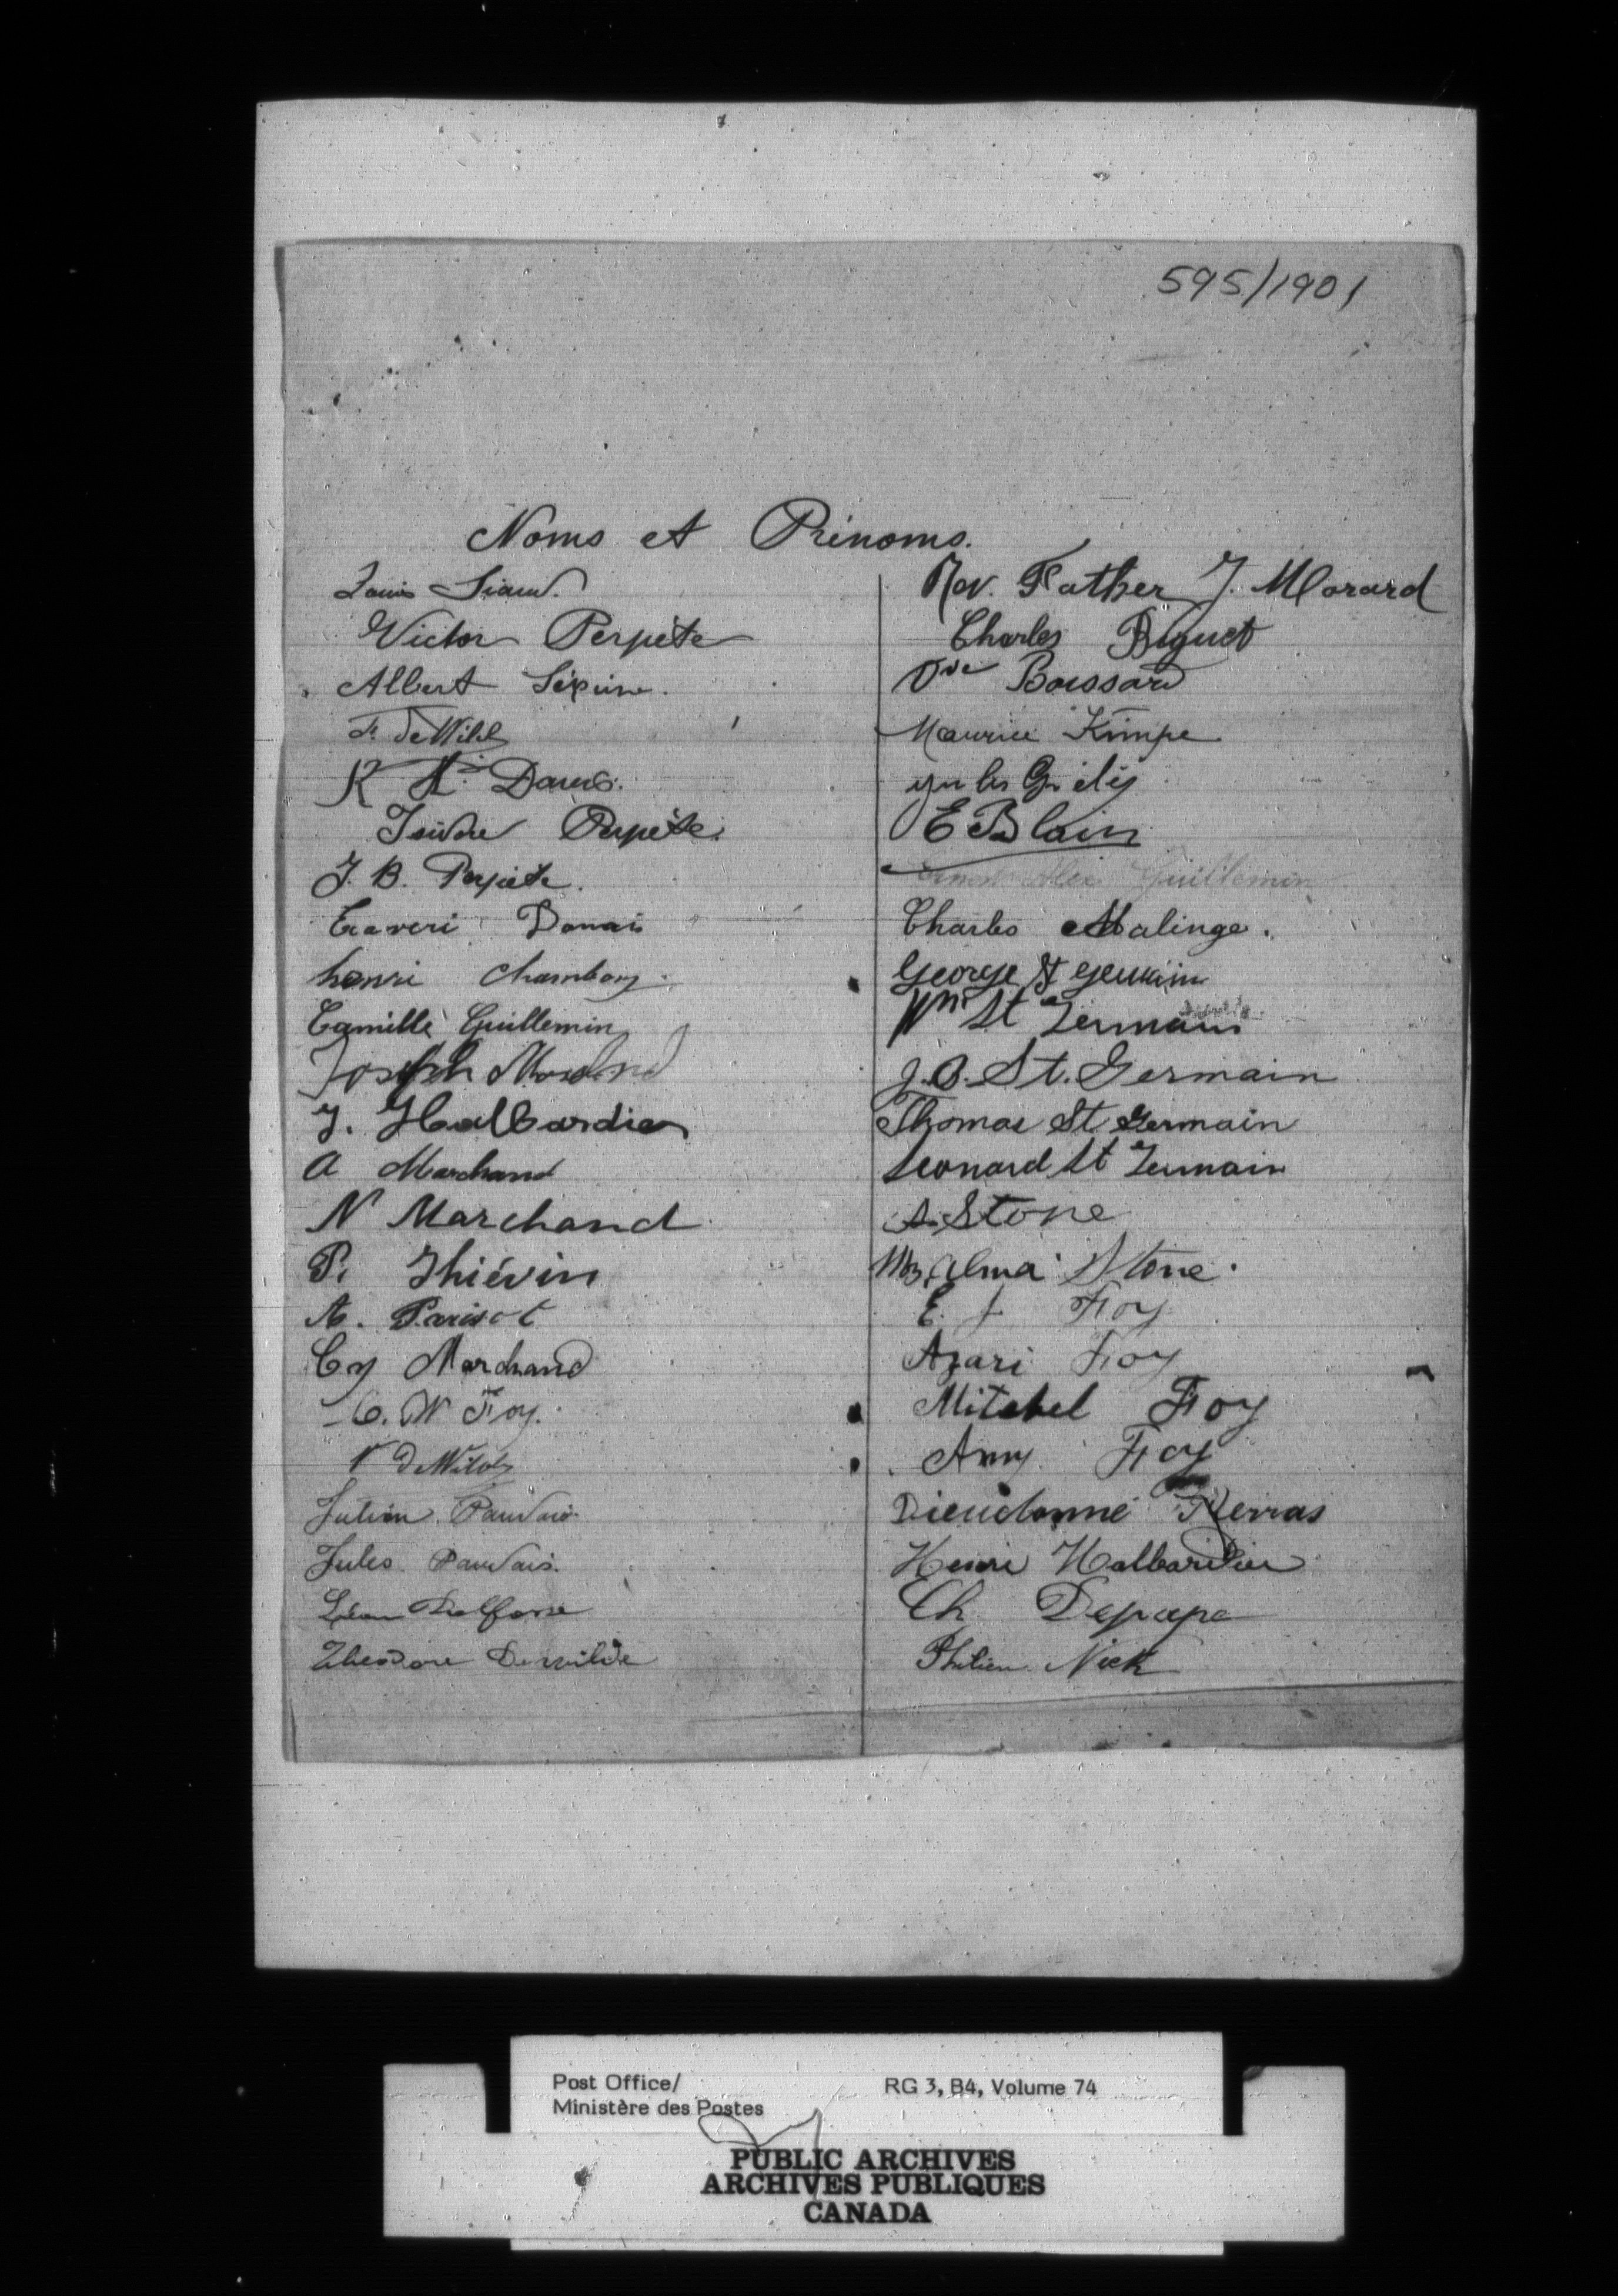 595/1901
Noms et Prénoms.
Louis
Victor Perpète
Albert Lépine.
DeWild
Isidore Perpète
J. B. Perpète.
Xaveri Donais
henri Chambon
Camille Guillemin
Joseph
J. Halbardier
A Marchand
N Marchand
P. Thiévin
A. Parisot
Cy Marchand
C. W Foy.
V DeWild
Julien
Jules
Léon
Theodore Dewilde
Rev. Father J. Morard
Charles Biguet
Vve Boussard
Maurice Kimpe
E Blain
Ernest Alex Guillemin
Charles Malinge.
George St germain
Wm St Germain
J.B. St. Germain
Thomas St Germain
Leonard St Germain
A. Stone
Mrs Alma Stone.
E. J Foy
Azari Foy
Mitchel Foy
Amy Foy
Dieudonné
Henri Halbardier
Ch Depape
Nick
Post Office/
Ministère des Postes
RG 3, B4, Volume 74
PUBLIC ARCHIVES
ARCHIVES PUBLIQUES
CANADA